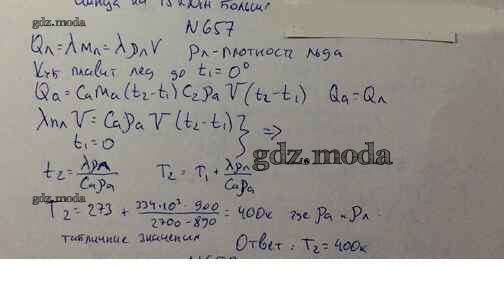 свинца на 15 кДж больше
gdz.moda
N657
Qл = λмл = λρлV ρл - плотность льда
плавит лед до t₁=0°
Qa = CaMa(t₂-t₁) C₂ρa V(t₂-t₁) Qa = Qл
λпл V = Caρa V (t₂-t₁) } =>
t₁=0
t₂ = λρл/Caρa T₂ = T₁ + λρл/Caρa
gdz.moda
gdz.moda
T₂ = 273 + 334·10³·900/2700-890 = 400к где ρa и ρл -
табличные значения Ответ: T₂ = 400к